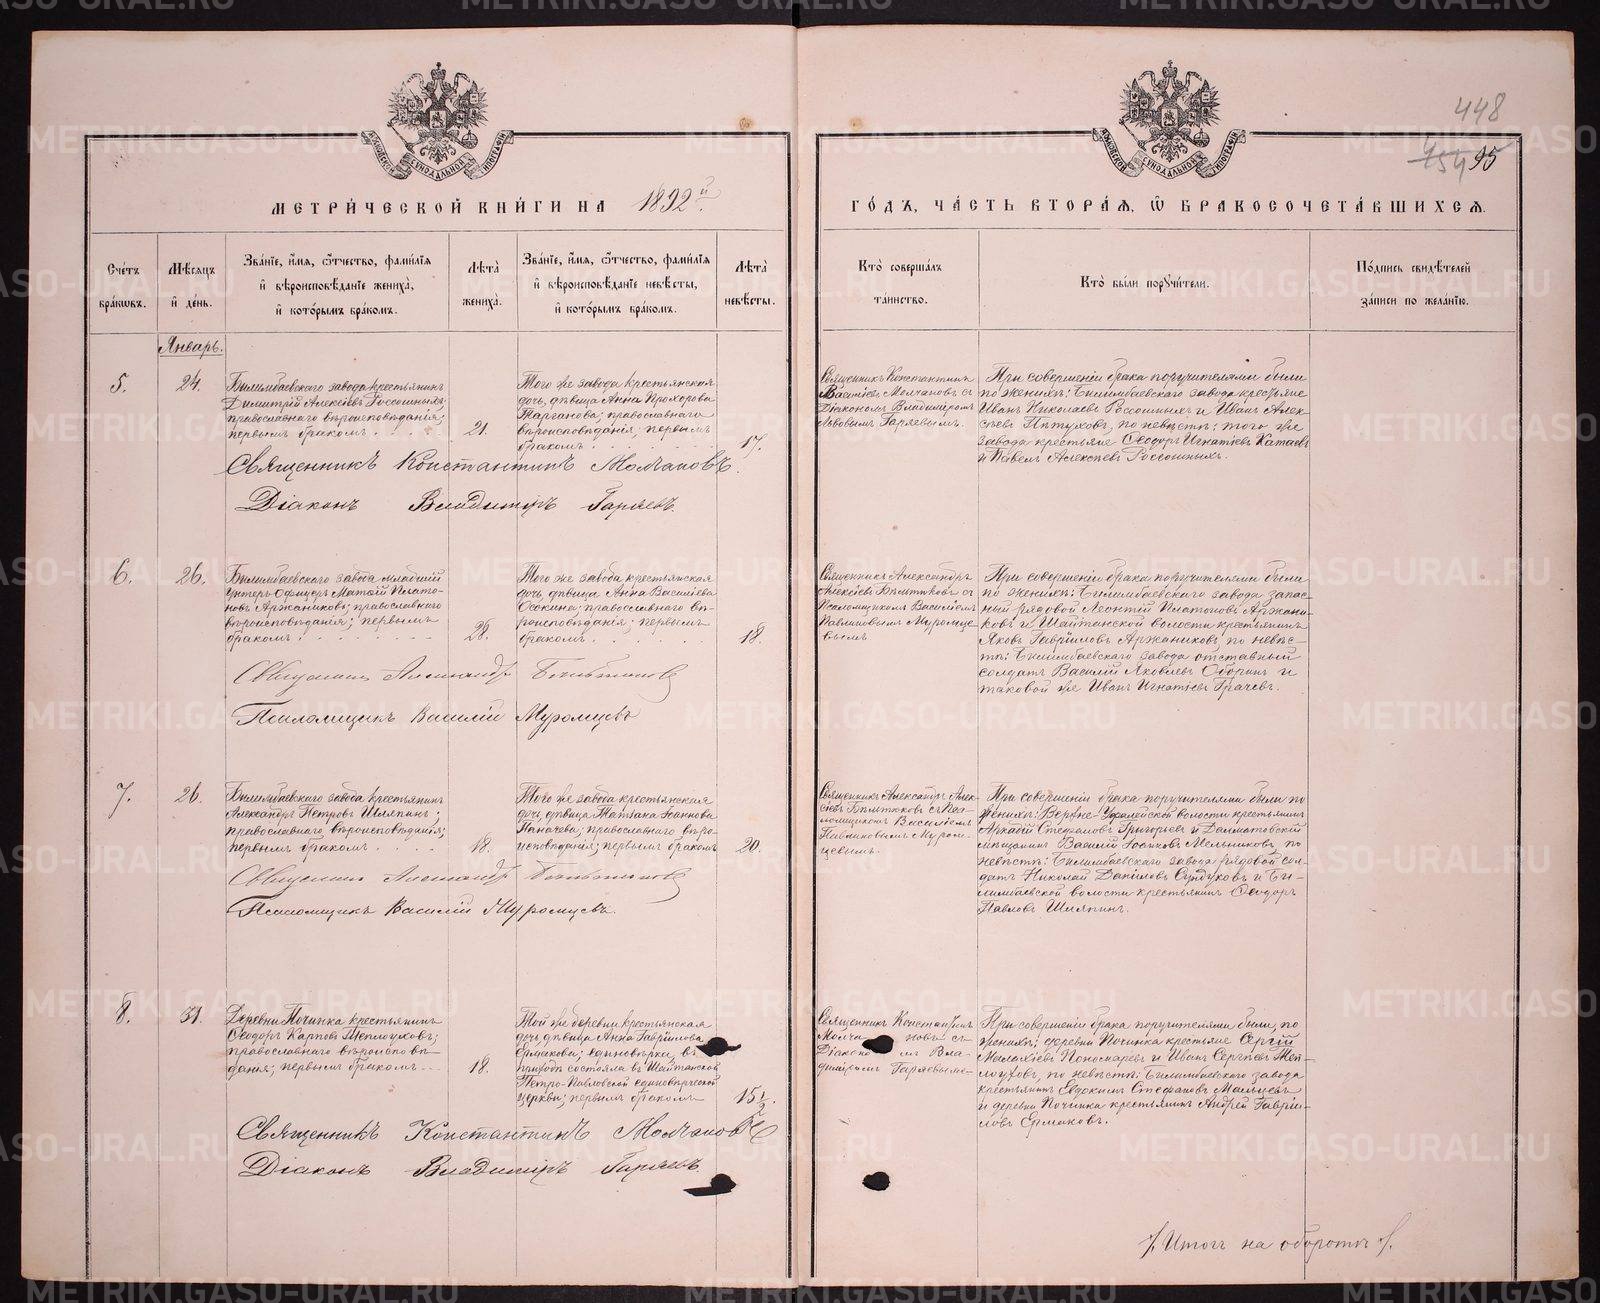 МЕТРИ́ЧЕСКОЙ КНИ́ГИ НА 1892 й
ГО́ДЪ, ЧА́СТЬ ВТОРА́Ѧ, Ѽ БРАКОСОЧЕТА́ВШИХСѦ.
448
95
Сче́тъ бра́кѡвъ.
Мѣ́сѧцъ и҆ де́нь.
Зва́нїе, и҆́мѧ, ѻ҆́тчество, фами́лїѧ и҆ вѣроисповѣ́данїе жениха̀, и҆ кото́рымъ бра́комъ.
Лѣ́та жениха̀.
Зва́нїе, и҆́мѧ, ѻ҆́тчество, фами́лїѧ и҆ вѣроисповѣ́данїе невѣ́сты, и҆ кото́рымъ бра́комъ.
Лѣ́та невѣ́сты.
Кто̀ соверша́лъ та́инство.
Кто̀ бы́ли порꙋчи́тели.
По́дпись свидѣ́телей за́писи по жела́нїю.
Январь.
5.
24.
Билимбаевскаго завода крестьянинъ
Димитрій Алексѣевъ Россошныхъ;
православнаго вѣроисповѣданія;
первымъ бракомъ
21.
Того же завода крестьянская
дочь, дѣвица Анна Прохорова
Тарганова; православнаго
вѣроисповѣданія; первымъ
бракомъ
17.
Священникъ Константинъ
Васильевъ Молчановъ съ
Діакономъ Владимиромъ
Львовымъ Гаряевымъ.
При совершеніи брака поручителями были
по женихѣ: Билимбаевскаго завода крестьяне
Иванъ Николаевъ Россошныхъ и Иванъ Алек-
сѣевъ Пѣтуховъ, по невѣстѣ: того же
завода крестьяне Ѳеодоръ Игнатіевъ Катаевъ
и Павелъ Алексѣевъ Россошныхъ.
Священникъ Константинъ Молчановъ.
Діаконъ Владимиръ Гаряевъ.
6.
26.
Билимбаевскаго завода младшій
унтеръ-офицеръ Матѳій Плато-
новъ Аржаниковъ; православнаго
вѣроисповѣданія; первымъ
бракомъ
28.
Того же завода крестьянская
дочь, дѣвица Анна Васильева
Осокина; православнаго вѣ-
роисповѣданія; первымъ
бракомъ
18.
Священникъ Александръ
Алексѣевъ Бѣлтюковъ съ
Псаломщикомъ Василіемъ
Павлиновымъ Муромце-
вымъ
При совершеніи брака поручителями были
по женихѣ: Билимбаевскаго завода запас-
ный рядовой Леонтій Платоновъ Аржани-
ковъ и Шайтанской волости крестьянинъ
Яковъ Гавріиловъ Аржаниковъ, по невѣс-
тѣ: Билимбаевскаго завода отставный
солдатъ Василій Яковлевъ Оборинъ и
таковой же Иванъ Игнатіевъ Грачевъ.
Священникъ Александръ Бѣлтюковъ
Псаломщикъ Василій Муромцевъ
7.
26.
Билимбаевскаго завода крестьянинъ
Александръ Петровъ Шиляпинъ;
православнаго вѣроисповѣданія;
первымъ бракомъ
18.
Того же завода крестьянская
дочь, дѣвица Татіана Іоаннова
Паначева; православнаго вѣро-
исповѣданія; первымъ бракомъ
20.
Священникъ Александръ Алек-
сѣевъ Бѣлтюковъ съ Пса-
ломщикомъ Василіемъ
Павлиновымъ Муром-
цевымъ.
При совершеніи брака поручителями были по
женихѣ: Верхне-Уфалейской волости крестьянинъ
Аркадій Стефановъ Григорьевъ и Далматовскій
мѣщанинъ Василій Мельниковъ, по
невѣстѣ: Билимбаевскаго завода рядовой сол-
датъ Николай Даниловъ Сундуковъ и Би-
лимбаевской волости крестьянинъ Ѳеодоръ
Павловъ Шиляпинъ.
Священникъ Александръ Бѣлтюковъ
Псаломщикъ Василій Муромцевъ.
8.
31.
Деревни Починка крестьянинъ
Ѳеодоръ Карповъ Теплоуховъ;
православнаго вѣроисповѣ-
данія; первымъ бракомъ
18.
Той же деревни крестьянская
дочь, дѣвица Анна Гавріилова
Ермакова; единовѣрка, въ
приходѣ состояла въ Шайтанской
Петро-Павловской единовѣрческой
церкви; первымъ бракомъ
15½.
Священникъ Константинъ
Молчановъ съ
Діакономъ Вла-
димиромъ Гаряевымъ.
При совершеніи брака поручителями были, по
женихѣ: деревни Починка крестьяне Сергій
Малахіевъ Пономаревъ и Иванъ Сергѣевъ Теп-
лоуховъ, по невѣстѣ: Билимбаевскаго завода
крестьянинъ Евдокимъ Стефановъ Мальцевъ
и деревни Починка крестьянинъ Андрей Гаврiи-
ловъ Ермаковъ.
Священникъ Константинъ Молчановъ
Діаконъ Владимиръ Гаряевъ.
Итогъ на оборотѣ
METRIKI.GASO-URAL.RU